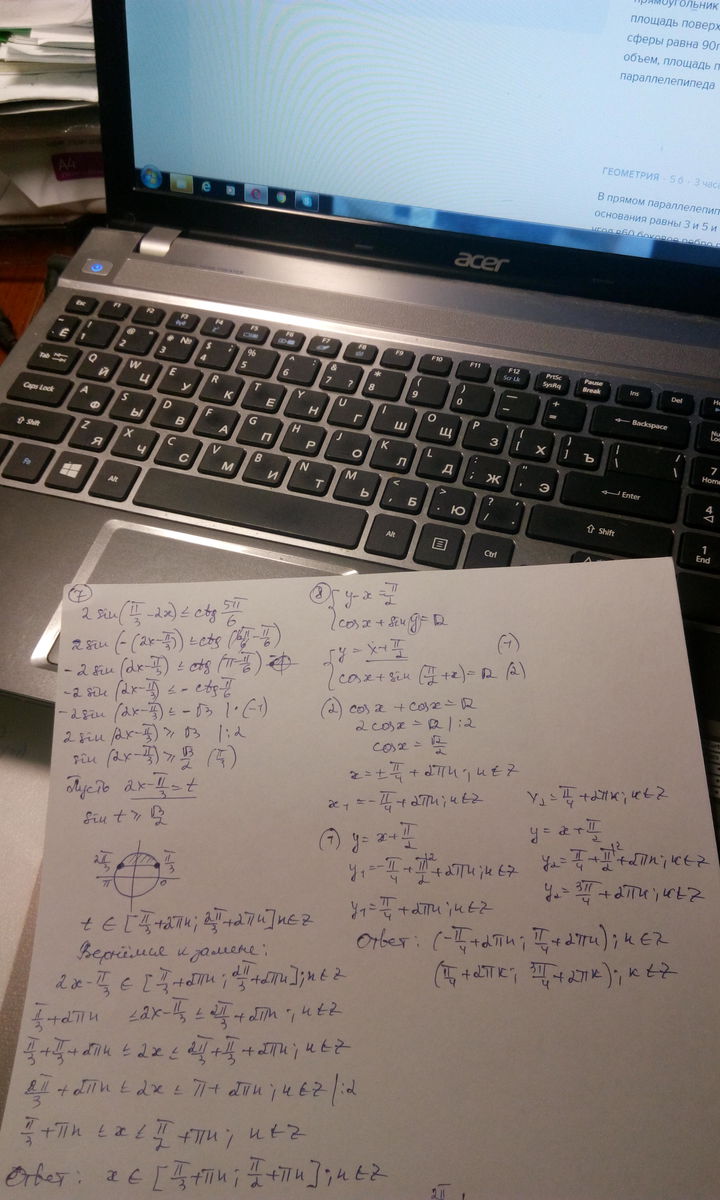 прямоугольник
площадь поверх
сферы равна 90п
объем, площадь п
параллелепипеда
ГЕОМЕТРИЯ · 5 б · 3 часа
В прямом параллелепип
основания равны 3 и 5 и
acer
Esc F1 F2 F3 F4 F5 F6 F7 F8 F9 F10 F11 F12 Scr Lk PrtSc SysRq Pause Break Ins Del
Ё 1 ! 2 @ " 3 # № 4 $ ; 5 % 6 ^ : 7 & ? 8 * 9 ( 0 ) - _ = + Backspace
Tab Q Й W Ц E У R К T Е Y Н U Г I Ш O Щ P З [ Х ] Ъ \ |
Caps Lock A Ф S Ы D В F А G П H Р J О K Л L Д ; Ж ' Э Enter
Shift Z Я X Ч C С V М B И N Т M Ь < Б > Ю ? / Shift
Fn Alt Alt Ctrl
7 Home
4
1 End
A4
7
2 sin(π/3 - 2x) ≤ ctg 5π/6
2 sin(-(2x-π/3)) ≤ ctg(6π/6 - π/6)
-2 sin(2x-π/3) ≤ ctg(π-π/6)
-2 sin(2x-π/3) ≤ -ctg π/6
-2 sin(2x-π/3) ≤ -√3 |·(-1)
2 sin(2x-π/3) ≥ √3 |:2
sin(2x-π/3) ≥ √3/2 (π/3)
Пусть 2x-π/3 = t
sin t ≥ √3/2
2π/3 π/3
π 0
t ∈ [π/3+2πn; 2π/3+2πn] n∈Z
Вернёмся к замене:
2x-π/3 ∈ [π/3+2πn; 2π/3+2πn]; n∈Z
π/3+2πn ≤ 2x-π/3 ≤ 2π/3+2πn; n∈Z
π/3+π/3+2πn ≤ 2x ≤ 2π/3+π/3+2πn; n∈Z
2π/3+2πn ≤ 2x ≤ π+2πn; n∈Z |:2
π/3+πn ≤ x ≤ π/2+πn; n∈Z
Ответ: x ∈ [π/3+πn; π/2+πn]; n∈Z
8
{ y-x = π/2
cosx+sin y = √2
{ y = x+π/2 (1)
cosx+sin(π/2+x) = √2 (2)
(2) cosx+cosx = √2
2cosx = √2 |:2
cosx = √2/2
x = ±π/4+2πn; n∈Z
x1 = -π/4+2πn; n∈Z x2 = π/4+2πk; k∈Z
(1) y = x+π/2 y = x+π/2
y1 = -π/4+π/2+2πn; n∈Z y2 = π/4+π/2+2πk; k∈Z
y1 = π/4+2πn; n∈Z y2 = 3π/4+2πk; k∈Z
Ответ: (-π/4+2πn; π/4+2πn); n∈Z
(π/4+2πk; 3π/4+2πk); k∈Z